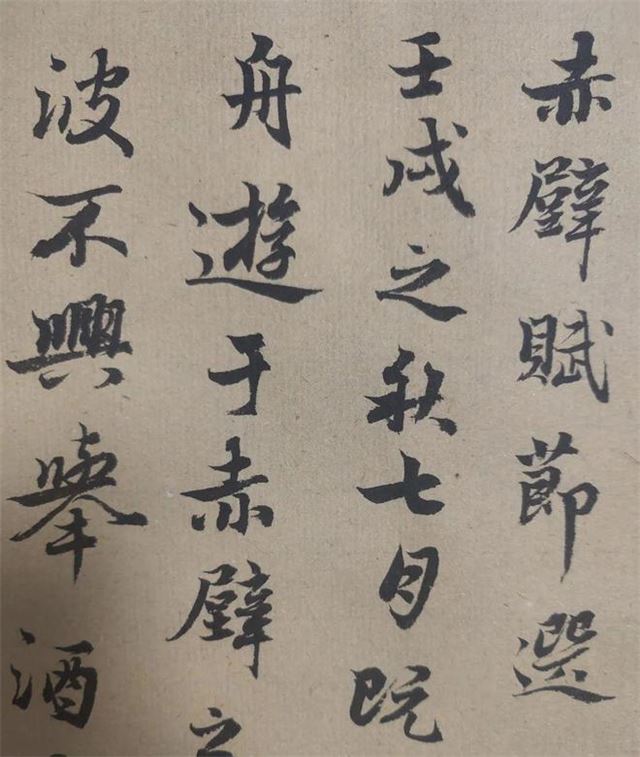 赤壁賦節選
壬戌之秋七月既
舟遊于赤壁之
波不興舉酒